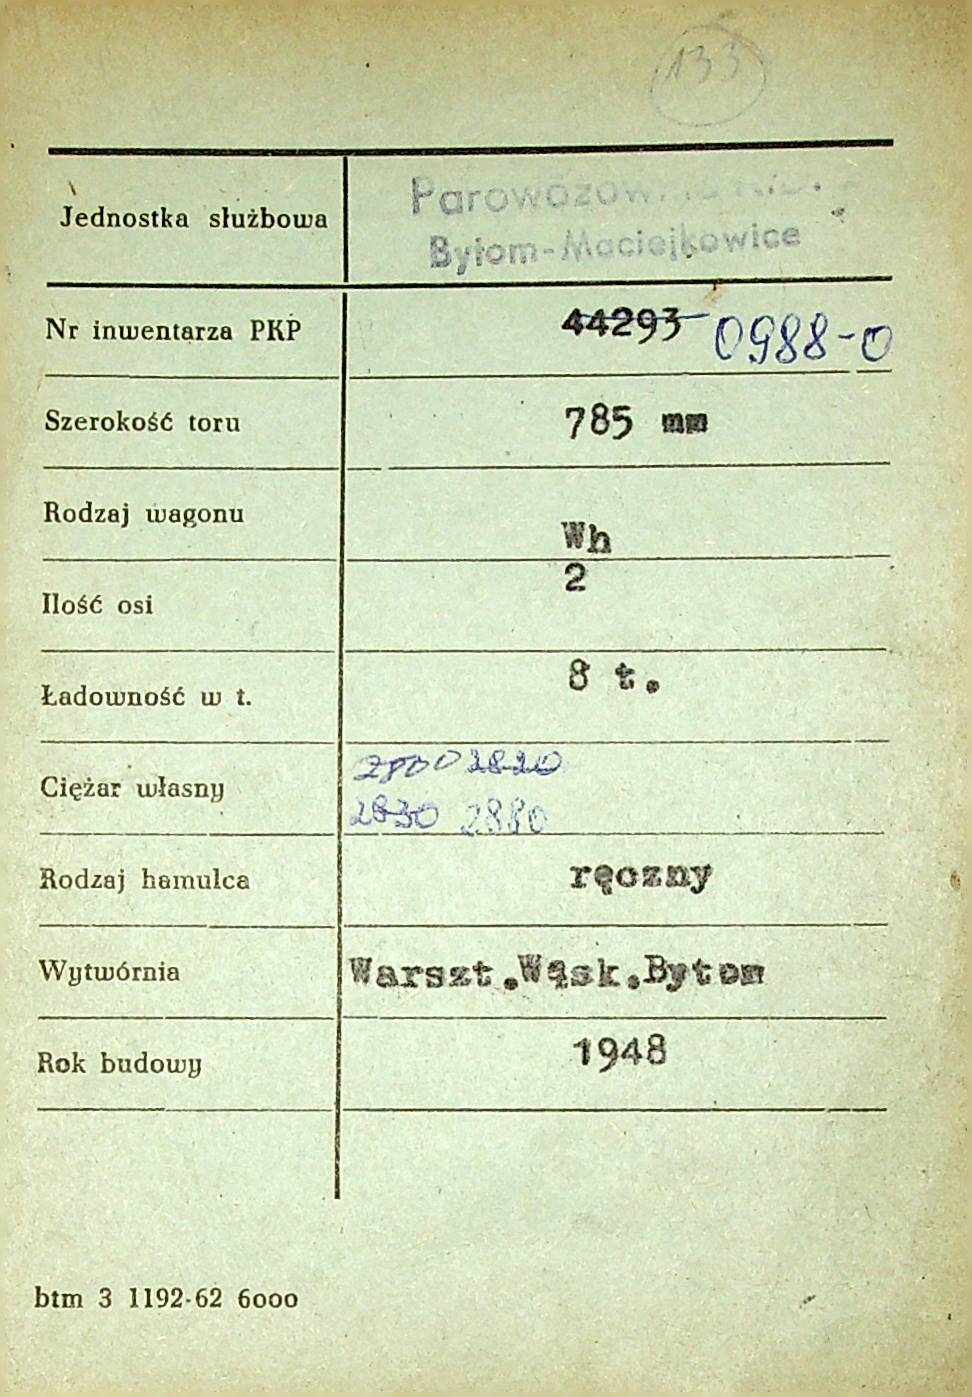 133
Jednostka służbowa
Bytom-Maciejkowice
Nr inwentarza PKP 44293 0988-0
Szerokość toru 785 mm
Rodzaj wagonu Wh
Ilość osi 2
Ładowność w t. 8 t.
Ciężar własny 2820
2830 2880
Rodzaj hamulca ręczny
Wytwórnia Warszt.Wąsk.Bytom
Rok budowy 1948
btm 3 1192-62 6000